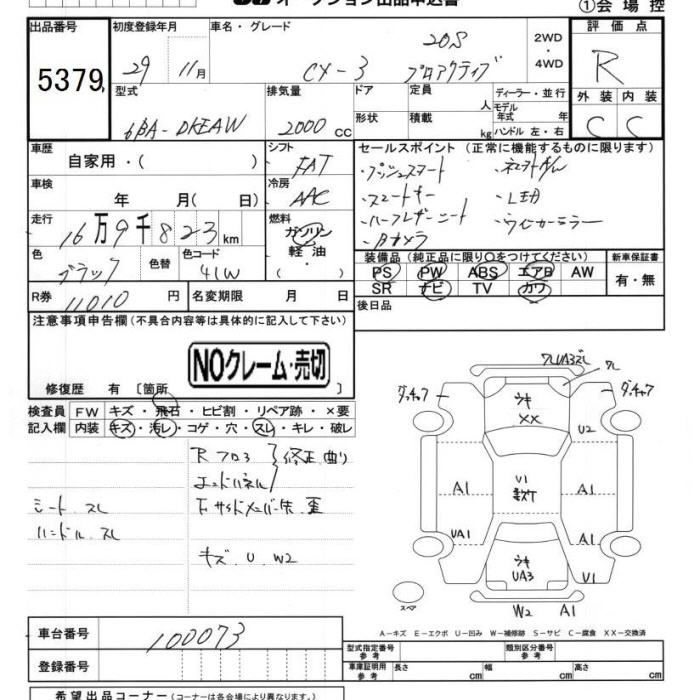 オークション出品申込書
①会場控
出品番号
5379
初度登録年月
29 11月
車名・グレード
CX-3 20S プロアクティブ
2WD
4WD
評価点
R
外装 内装
C C
型式
6BA-DKEAW
排気量
2000 CC
ドア
形状
定員 人
積載 kg
ディーラー・並行
モデル年式 年
ハンドル 左・右
車歴
自家用・( )
シフト
FAT
セールスポイント (正常に機能するものに限ります)
・プッシュスタート
・スマートキー
・LED
・ハーフレザーシート
・ウインカーミラー
・Bカメラ
車検
年 月( 日)
冷房
AAC
走行
16万9千823km
燃料
ガソリン
軽油・
( )
色
ブラック
色替
色コード
41W
装備品 (純正品に限り○をつけてください)
PS PW ABS エアB AW
SR ナビ TV カワ
新車保証書
有・無
R券
11010 円
名変期限 月 日
後日品
注意事項申告欄 (不具合内容等は具体的に記入して下さい)
NOクレーム・売切
修復歴 有 [箇所 ]
検査員記入欄
FW キズ・飛石・ヒビ割・リペア跡・×要
内装 キズ・汚レ・コゲ・穴・スレ・キレ・破レ
Rフロア
エンドパネル
修正、曲り
シート スレ
ハンドル スレ
キズ U W2
ウキ
XX
U2
U1
A1
A1
UA1
A1
ウキ
UA3
V1
スペア
W2 A1
A-キズ E-エクボ U-凹み W-補修跡 S-サビ C-腐食 XX-交換済
車台番号
100073
登録番号
型式指定番号
参考
類別区分番号
参考
車庫証明用
参考
長さ cm
幅 cm
高さ cm
希望出品コーナー (コーナーは各会場により異なります。)